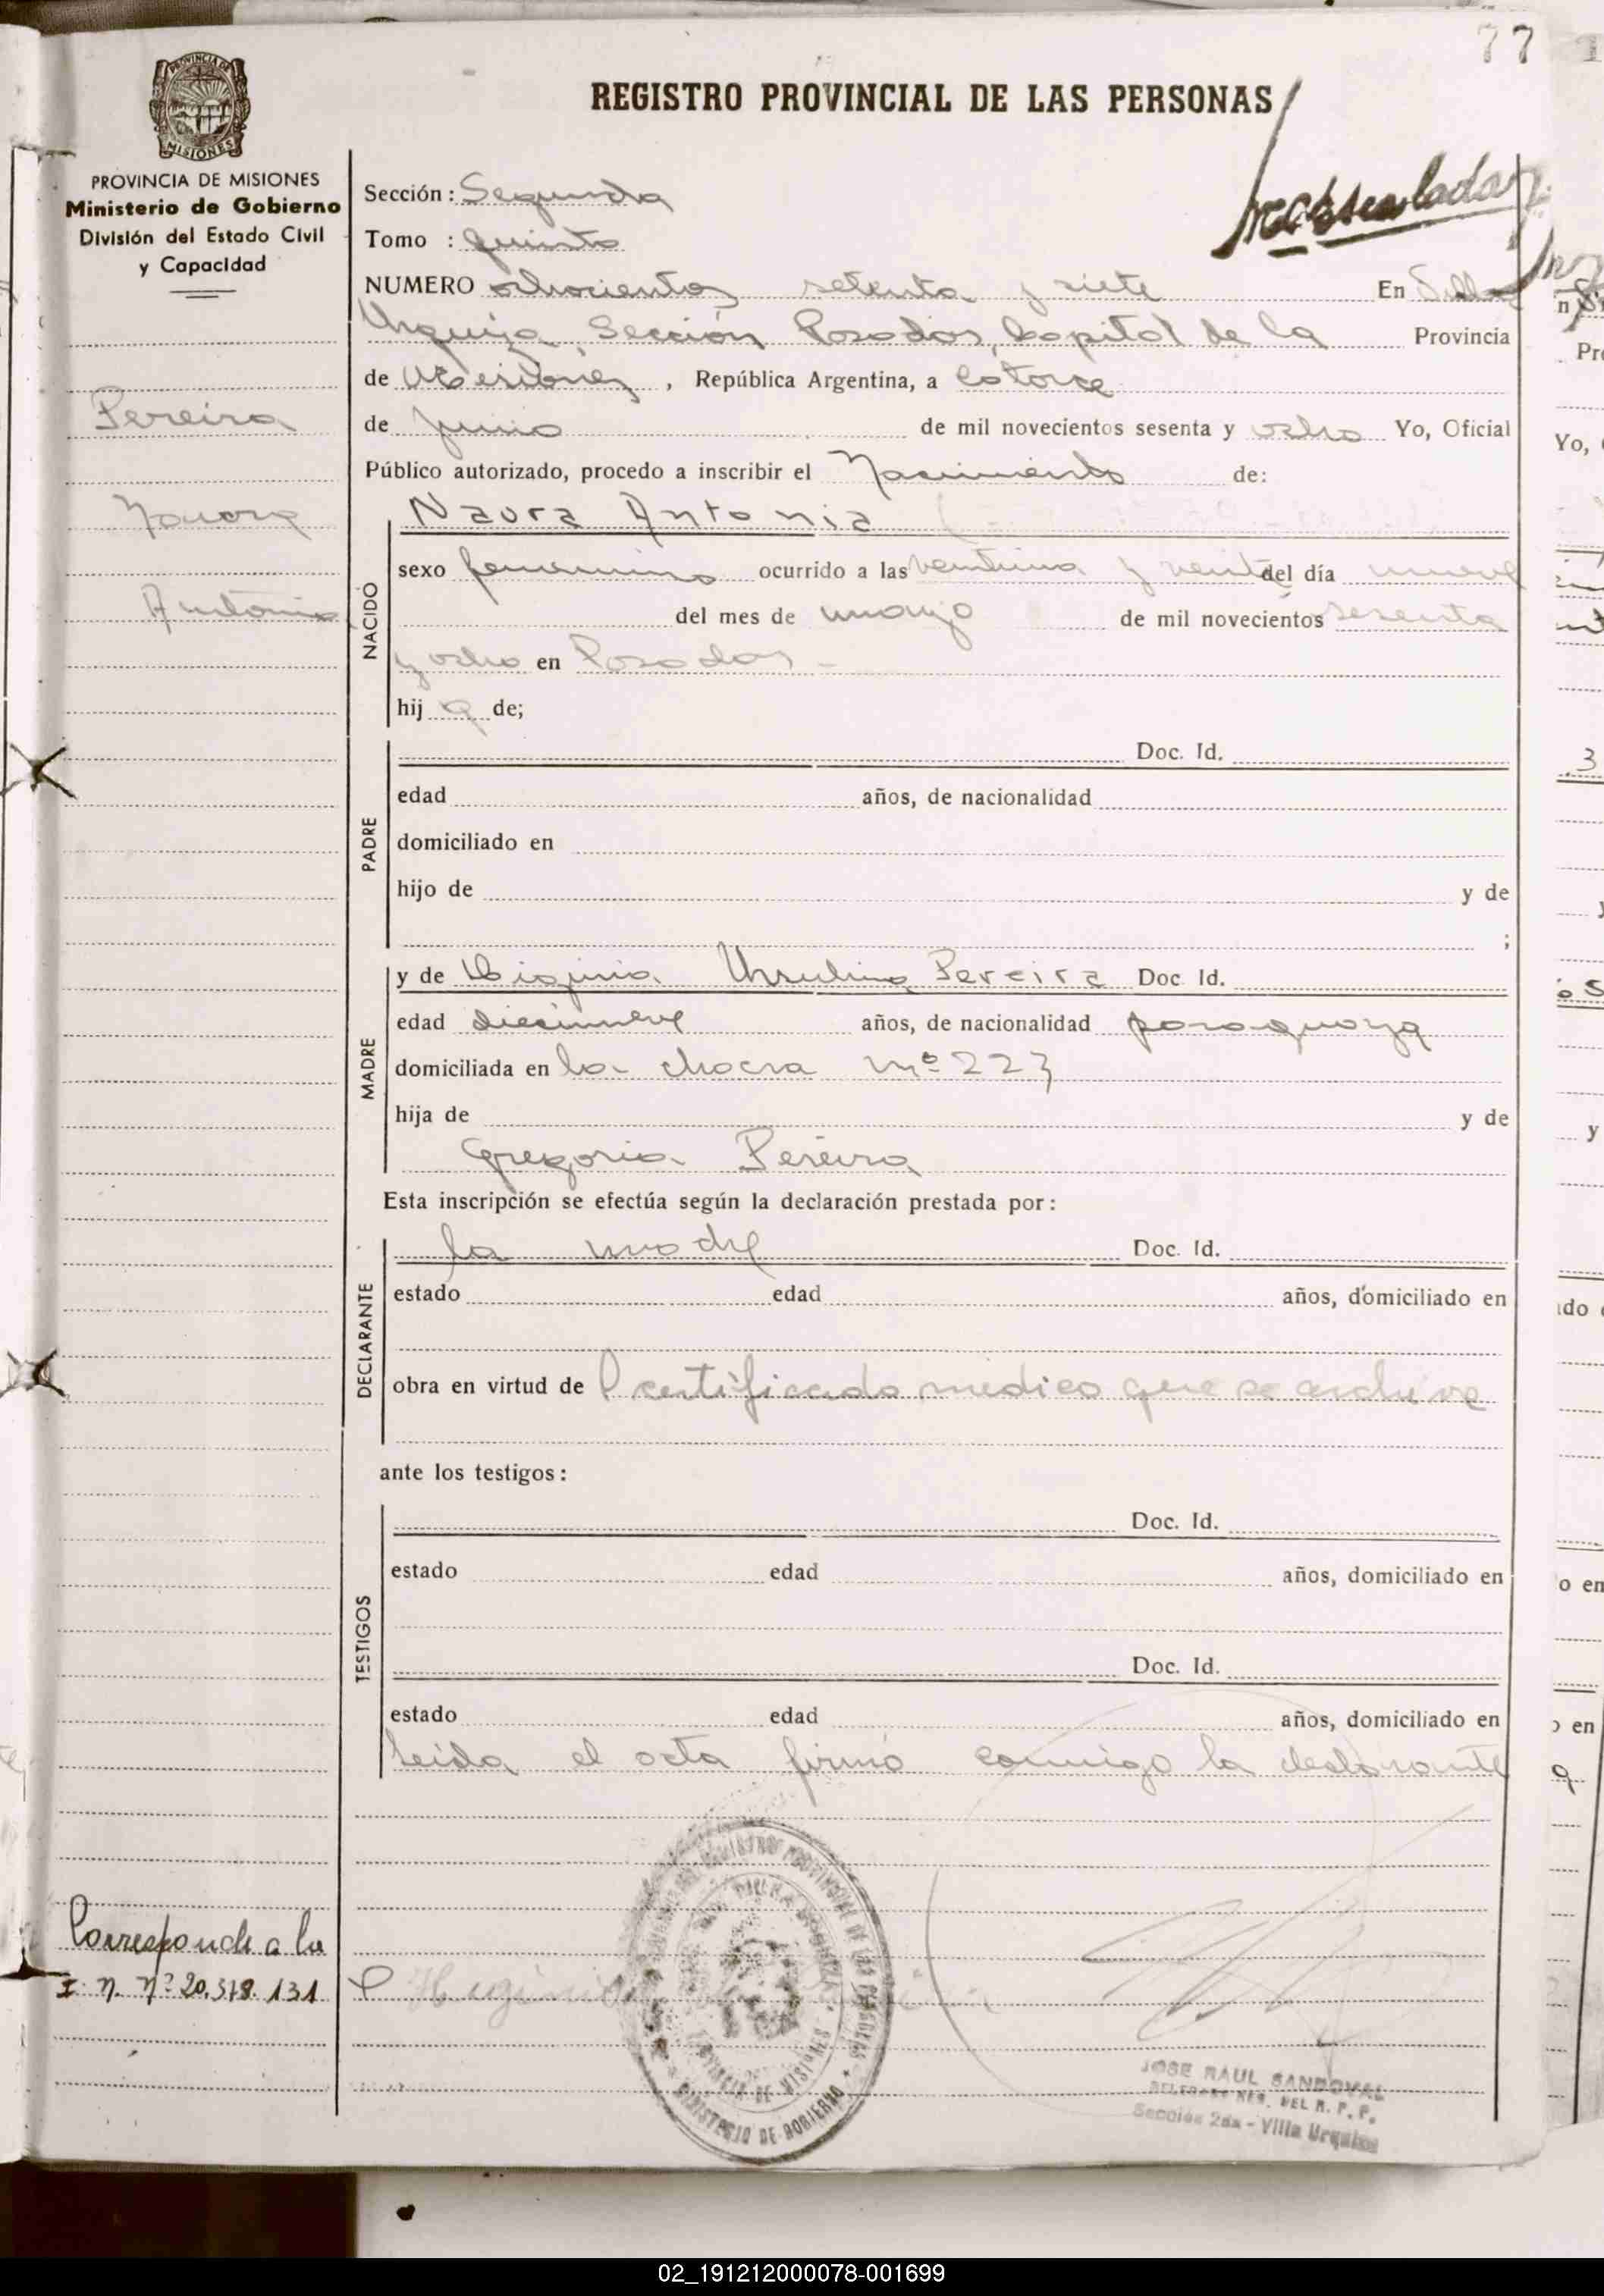 77
REGISTRO PROVINCIAL DE LAS PERSONAS
PROVINCIA DE MISIONES
Ministerio de Gobierno
División del Estado Civil
y Capacidad
Sección: Segunda
Tomo : quinto
NUMERO ochocientos setenta y siete En Villa
Urquiza, Sección Posadas, Capital de la Provincia
de Misiones, República Argentina, a catorce
de junio de mil novecientos sesenta y ocho Yo, Oficial
Público autorizado, procedo a inscribir el Nacimiento de:
Pereira
Naura
Antonia
NACIDO
Naura Antonia
sexo femenino ocurrido a las veintiuna y veinte del día nueve
del mes de mayo de mil novecientos sesenta
y ocho en Posadas
hij a de;
PADRE
Doc. Id.
edad años, de nacionalidad
domiciliado en
hijo de y de
;
MADRE
y de Higinia Ursulina Pereira Doc Id.
edad diecinueve años, de nacionalidad paraguaya
domiciliada en la chacra nº 223
hija de y de
Gregoria Pereira
Esta inscripción se efectúa según la declaración prestada por:
DECLARANTE
la madre Doc. Id.
estado edad años, domiciliado en
obra en virtud de certificado médico que se archiva
ante los testigos:
TESTIGOS
Doc. Id.
estado edad años, domiciliado en
Doc. Id.
estado edad años, domiciliado en
leida el acta firmó conmigo la declarante
Corresponde a la
I. N. Nº 20.378.131
Higinia
REGISTRO PROVINCIAL DE LAS PERSONAS
VILLA URQUIZA
PROVINCIA DE MISIONES
MINISTERIO DE GOBIERNO
JOSE RAUL SANDOVAL
DEL R. P. P.
Sección 2da - Villa Urquiza
02_191212000078-001699